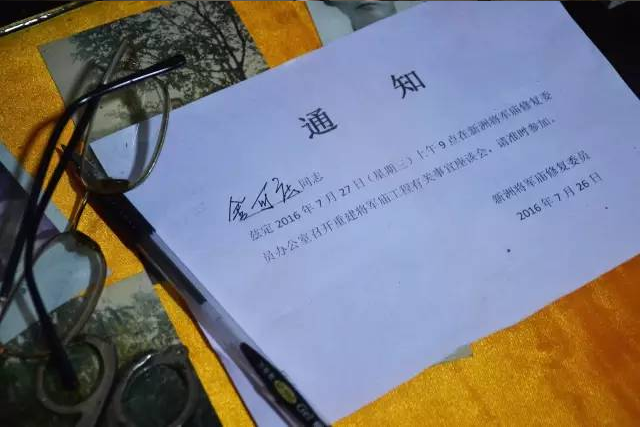 通知
金可法同志
兹定2016年7月27日（星期三）上午9点在新洲将军庙修复委
员办公室召开重建将军庙工程有关事宜座谈会，请准时参加。
新洲将军庙修复委员
2016年7月26日